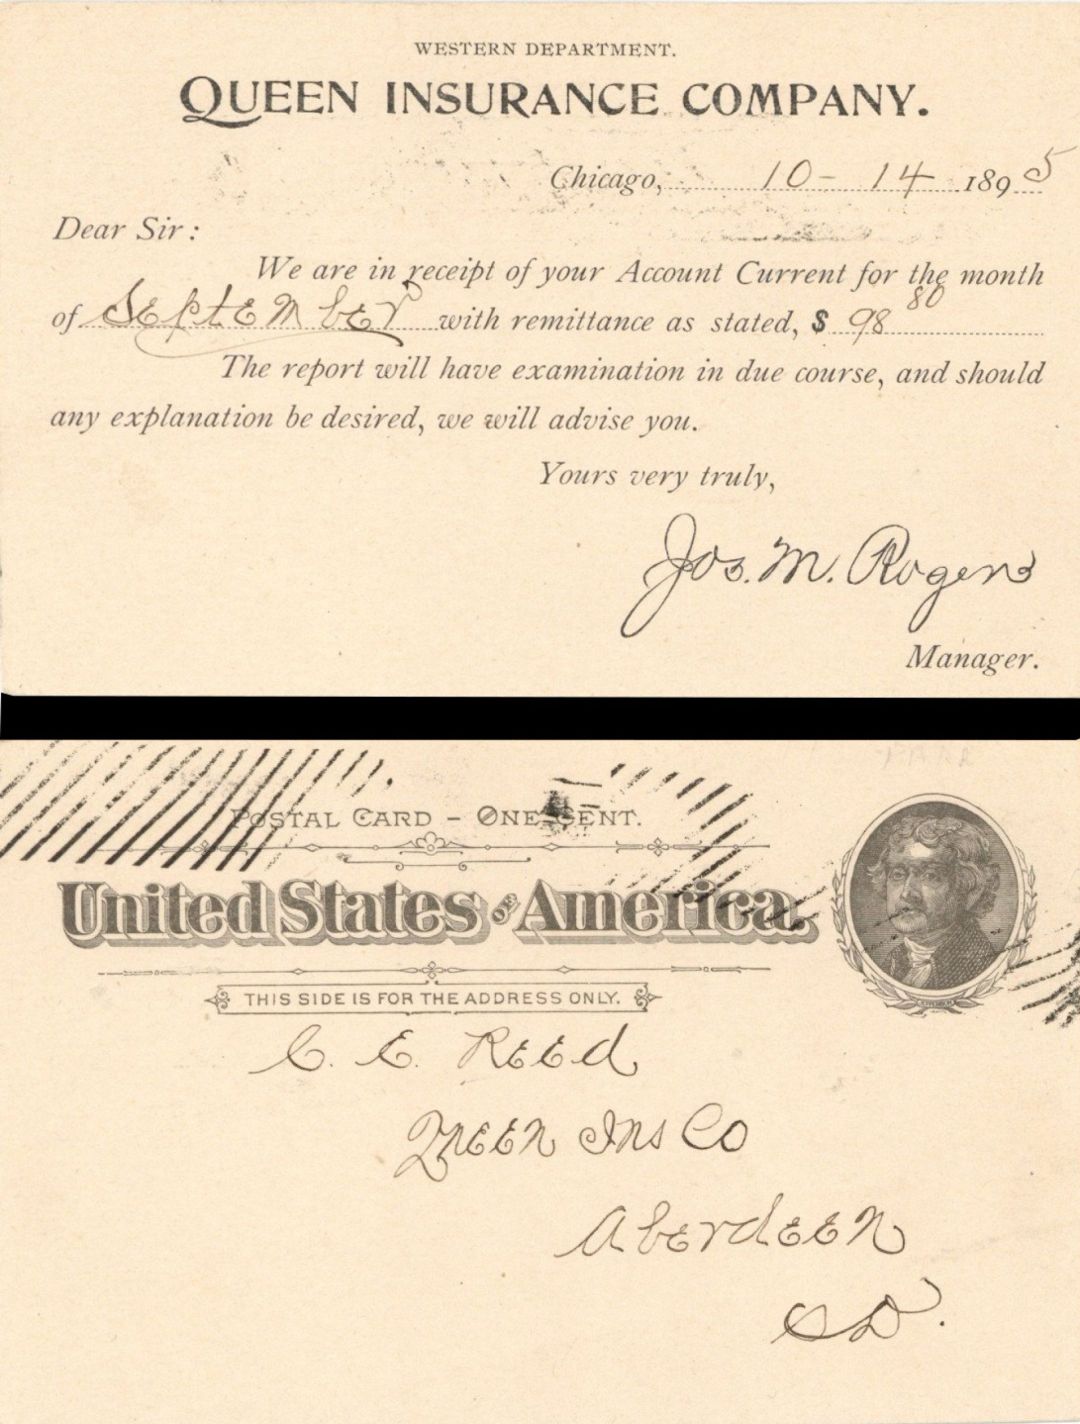 WESTERN DEPARTMENT.
QUEEN INSURANCE COMPANY.
Chicago, 10 - 14 1895
Dear Sir:
We are in receipt of your Account Current for the month
of September with remittance as stated, $ 98 80
The report will have examination in due course, and should
any explanation be desired, we will advise you.
Yours very truly,
Jos. M. Rogers
Manager.
POSTAL CARD - ONE CENT.
United States of America.
THIS SIDE IS FOR THE ADDRESS ONLY.
C. E. Reed
Queen Ins Co
Aberdeen
S D.